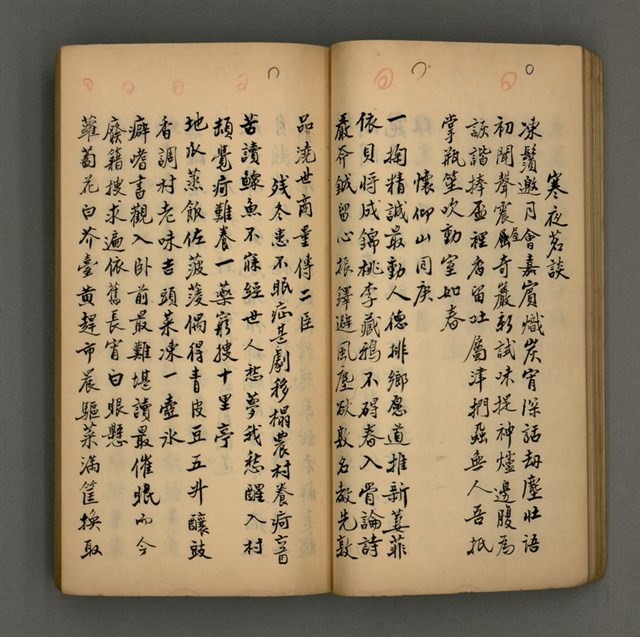 寒夜茗談
凍鬚邀月會嘉賓熾炭宵深話劫塵壯語
初開聲震屋奇嚴新試味提神爐邊腹為
詼諧捧盃裡香留吐屬津捫蝨無人吾抵
掌瓶笙吹動室如春
懷仰山同庚
一掬精誠最動人德排鄉愿道推新萋菲
依貝將成錦桃李藏鴉不碍春入骨論詩
嚴斧鉞留心振鐸避風塵欲敦名教先敦
品澆世商量傳二臣
殘冬患不眠症甚劇移榻農村養疴
苦讀鰥魚不寐經世人愁夢我愁醒入村
頓覺疴難養一藥窮搜十里亭
地瓜蒸飯佐菠薐偶得青皮豆五升釀豉
香調村老味舌頭菜凍一壺氷
癖嗜書觀入卧前最難堪讀最催眠而今
廢籍搜求遍依舊長宵白眼懸
蘿蔔花白芥臺黃趕市晨驅菜滿筐換取